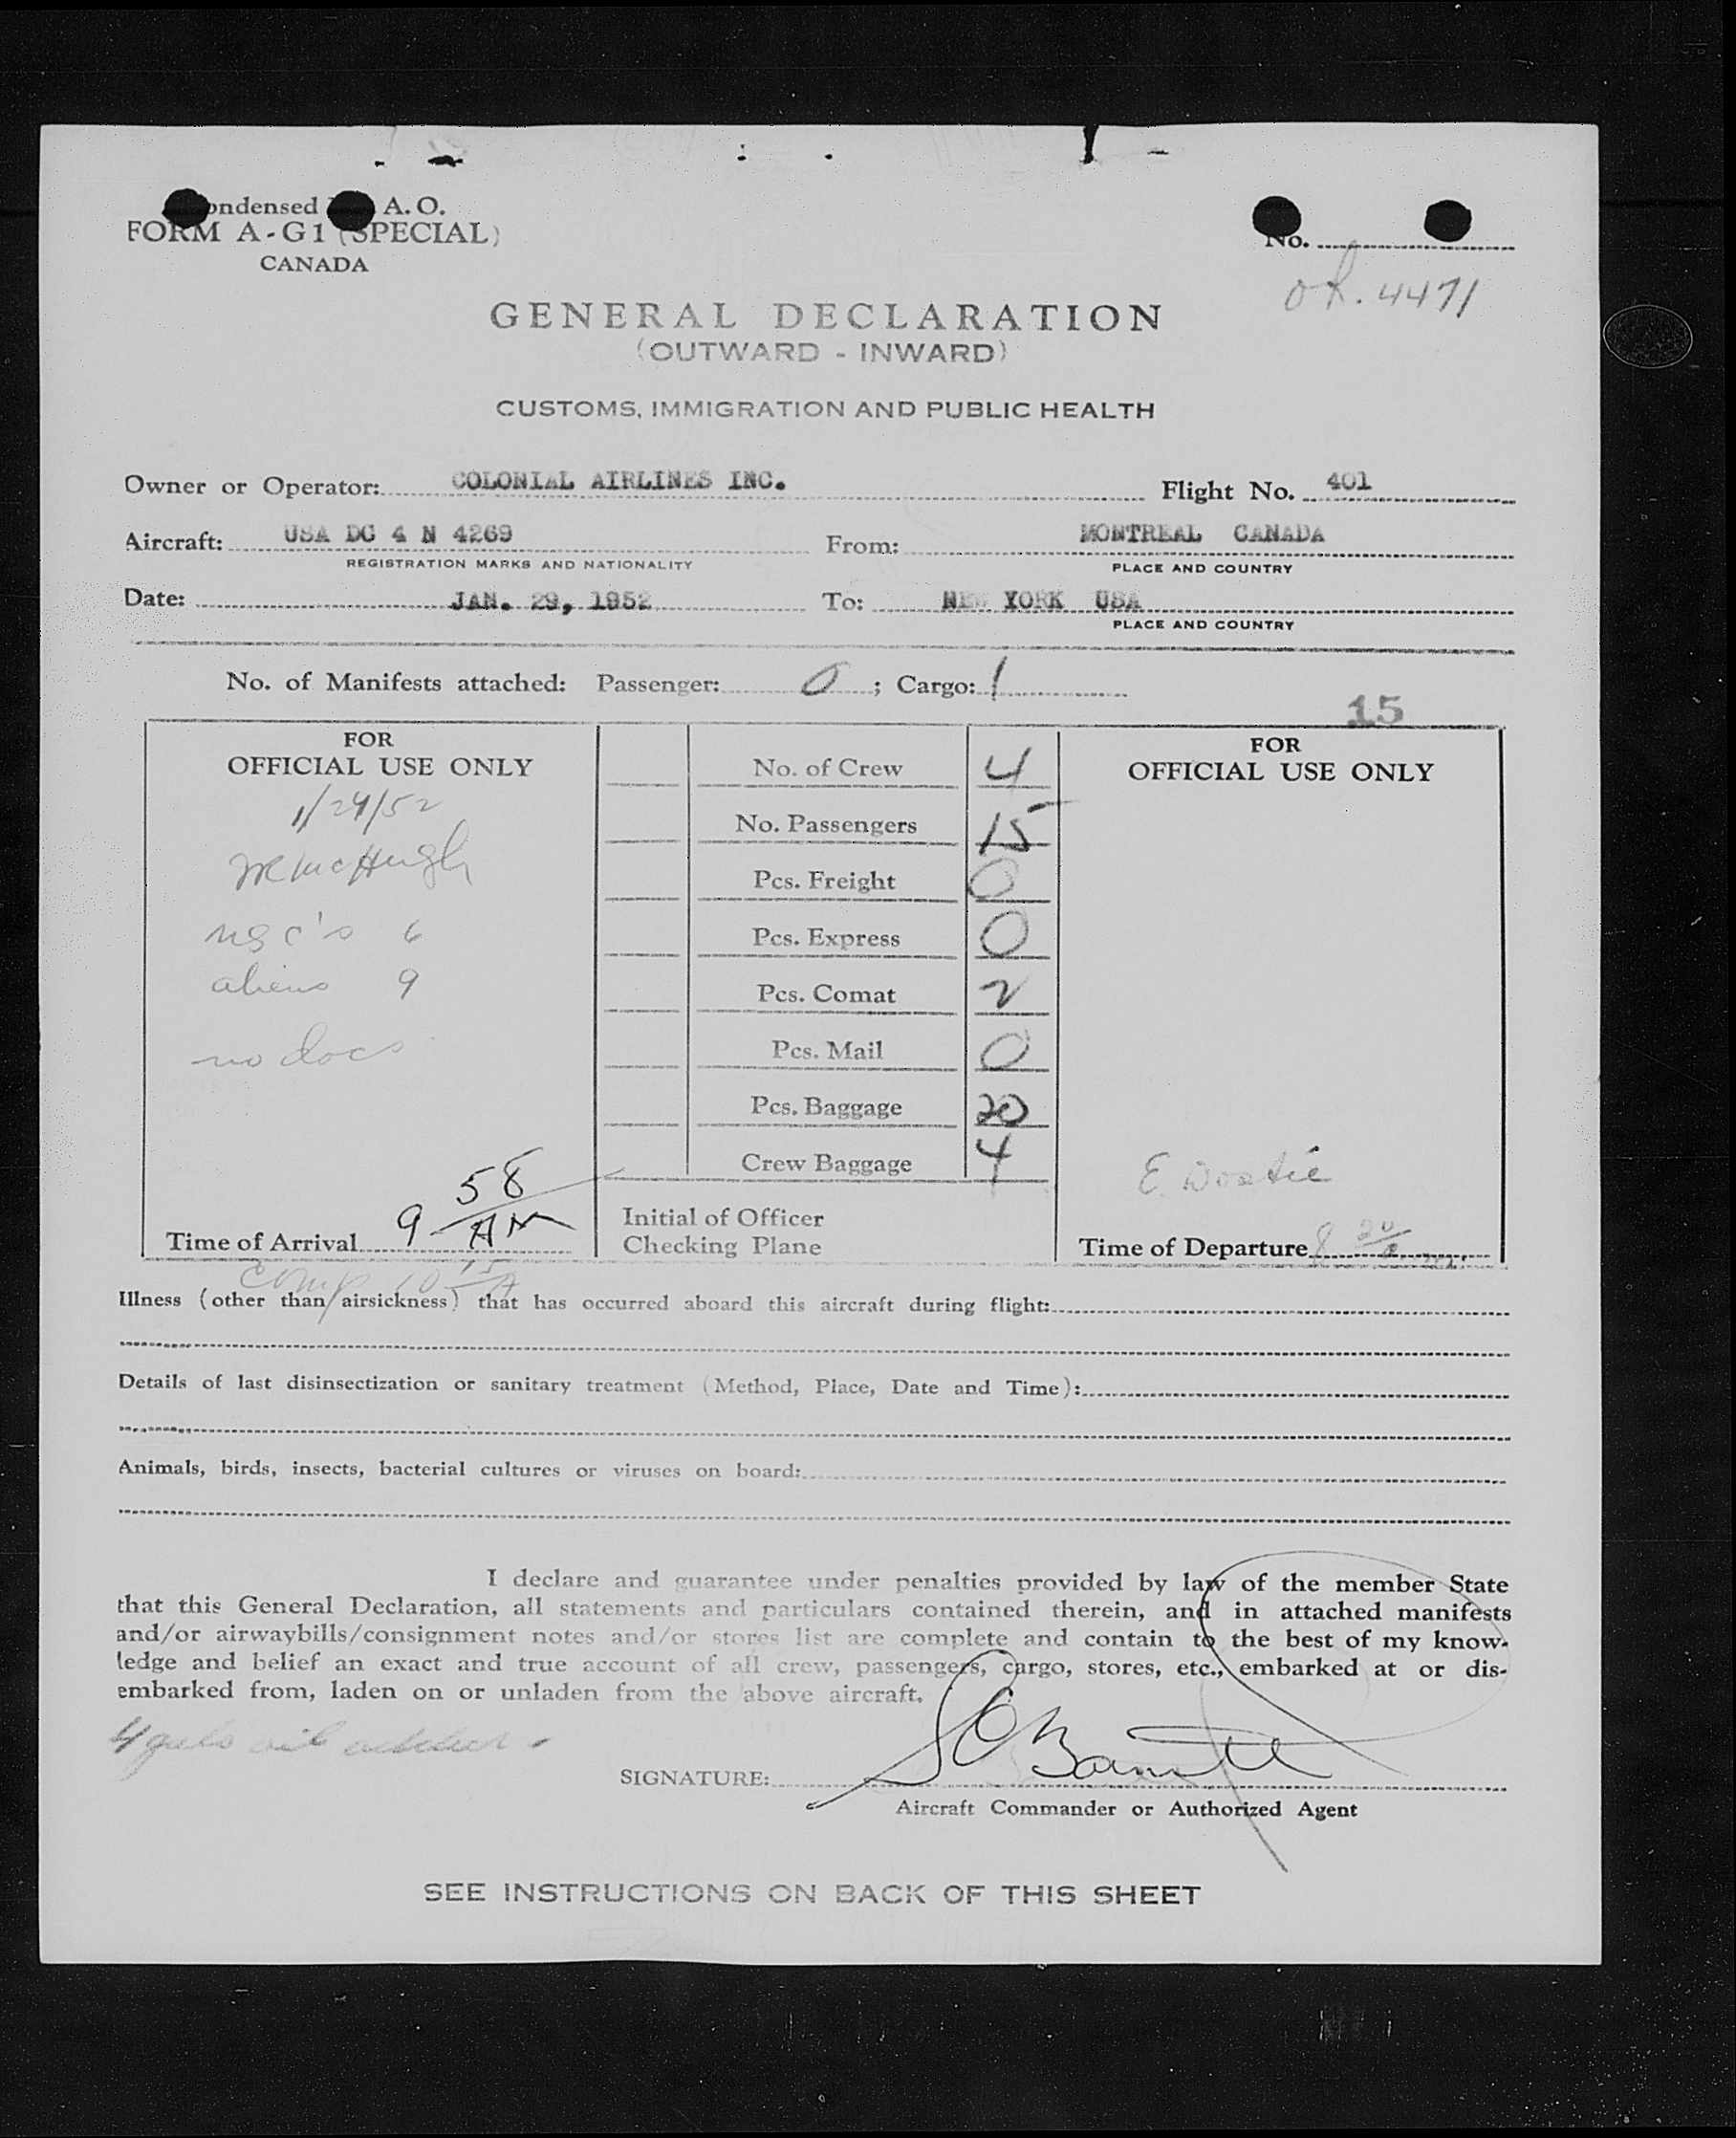 ondensed A. O.
FORM A-G1 (SPECIAL)
CANADA
No.
OR. 4471
GENERAL DECLARATION
(OUTWARD - INWARD)
CUSTOMS, IMMIGRATION AND PUBLIC HEALTH
Owner or Operator: COLONIAL AIRLINES INC. Flight No. 401
Aircraft: USA DC 4 N 4269 From: MONTREAL CANADA
REGISTRATION MARKS AND NATIONALITY PLACE AND COUNTRY
Date: JAN. 29, 1952 To: NEW YORK USA
PLACE AND COUNTRY
No. of Manifests attached: Passenger: 0 ; Cargo: 1
15
FOR
OFFICIAL USE ONLY
1/29/52
McHugh
6
aliens 9
no docs
Time of Arrival 9 58 AM
No. of Crew 4
No. Passengers 15
Pcs. Freight 0
Pcs. Express 0
Pcs. Comat 2
Pcs. Mail 0
Pcs. Baggage 20
Crew Baggage 4
Initial of Officer
Checking Plane
FOR
OFFICIAL USE ONLY
E
Time of Departure 8 20
Comp
Illness (other than airsickness) that has occurred aboard this aircraft during flight:
Details of last disinsectization or sanitary treatment (Method, Place, Date and Time):
Animals, birds, insects, bacterial cultures or viruses on board:
I declare and guarantee under penalties provided by law of the member State
that this General Declaration, all statements and particulars contained therein, and in attached manifests
and/or airwaybills/consignment notes and/or stores list are complete and contain to the best of my know-
ledge and belief an exact and true account of all crew, passengers, cargo, stores, etc., embarked at or dis-
embarked from, laden on or unladen from the above aircraft.
4 gals oil
SIGNATURE:
Aircraft Commander or Authorized Agent
SEE INSTRUCTIONS ON BACK OF THIS SHEET